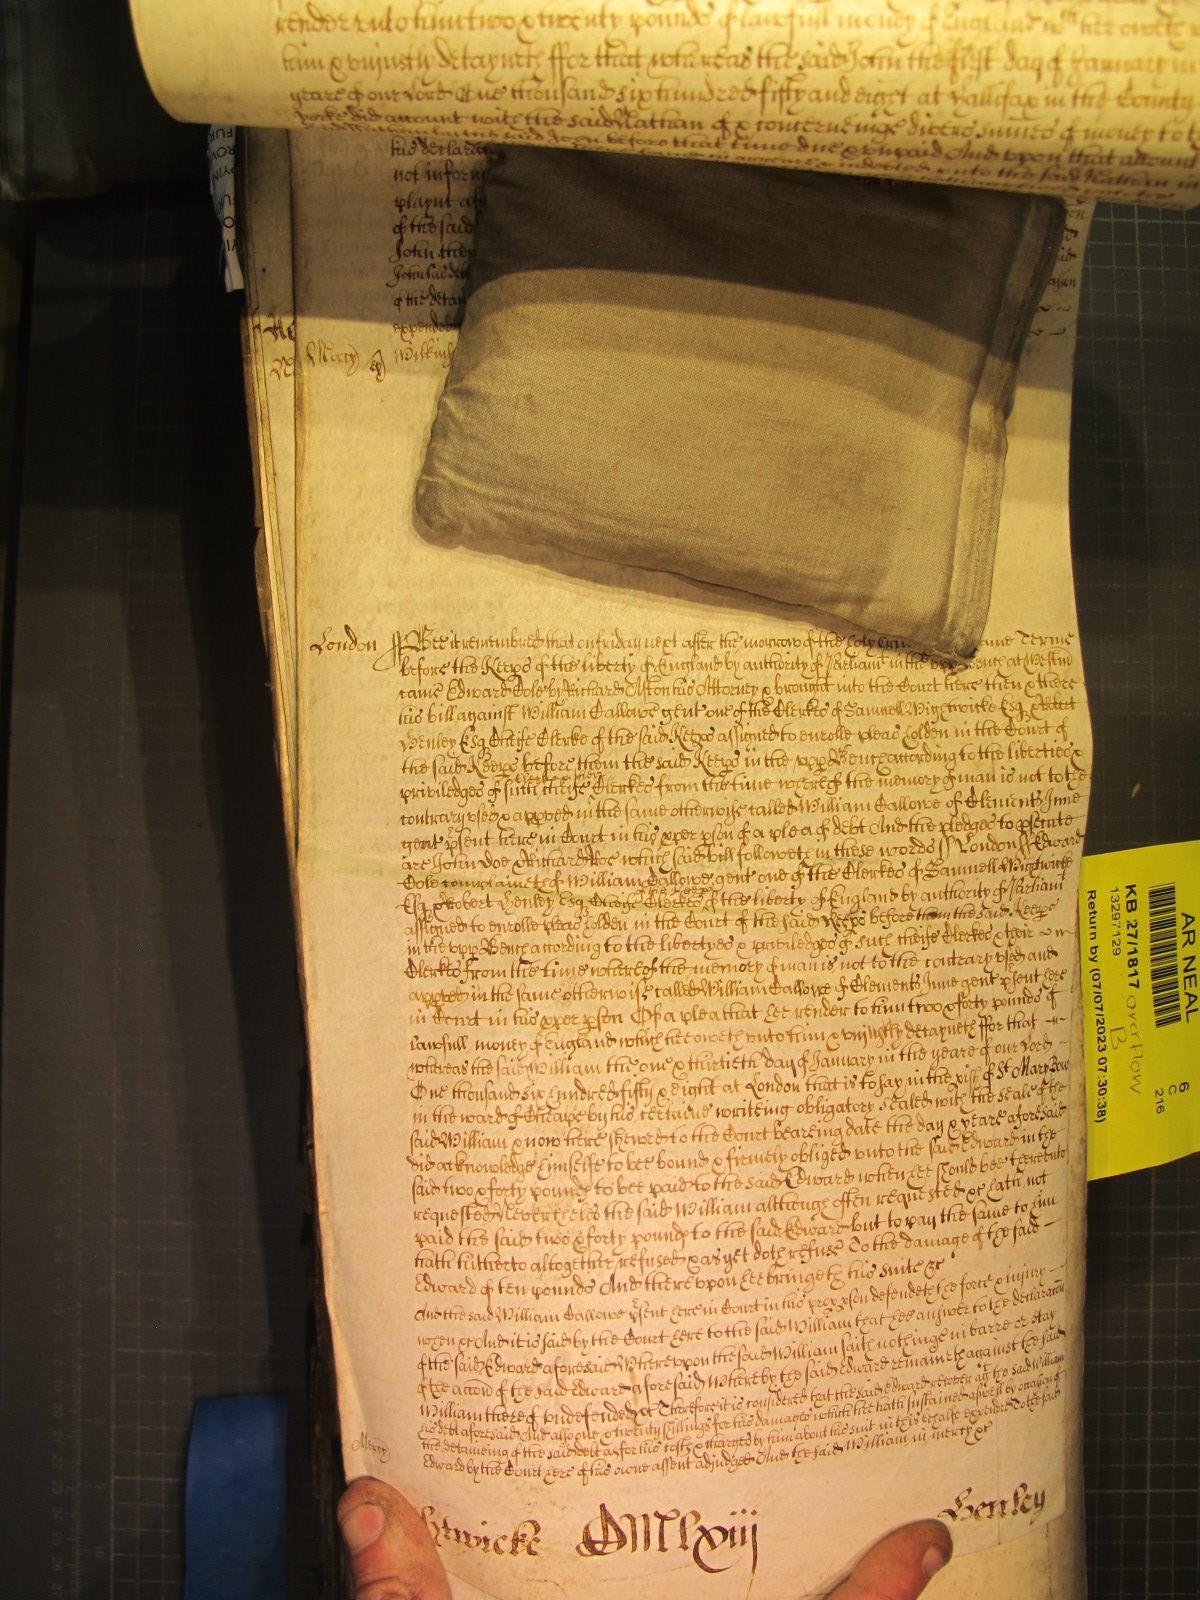 render unto him two & twenty pounds of lawfull money of England wch hee oweth
him & uniustly detayneth ffor that whereas the said John the first day of January in
yeare of our Lord One thousand six hundred fifty and eight at Hallifax in the County
Yorke did account with the said Nathan of & concerninge divers summes of money to
the said John before that time due & unpaid And upon that account
his declara
not inform
playnt afo
of the said
John the
John his de
of the detay
expended
Mercy Wilkin
London ss Bee it remembred that on friday next after the morrow of the holy same Terme
before the Keeps of the liberty of England by authority of Parliamt in the upp Bench at Westm
came Edward Cole by Richard Aston his Attorney & brought into the Court here then & there
his bill against William Callowe gent one of the Clerkes of Samuell Wightwicke Esq & Robert
Henley Esq Cheife Clerke of the said Keeps assigned to enrolle pleas holden in the Court of
the said Keeps before them the said Keeps in the upp Bench according to the liberties &
priviledges of such cheife Clerkes from the time whereof the memory of man is not to the
contrary used & appved in the same otherwise called William Callowe of Clements Inne
gent psent here in Court in his pper pson of a plea of debt And the pledges to psecute
are John Doe & Richard Roe which said bill followeth in these words ss London ss Edward
Cole complaineth of William Callowe gent one of the Clerkes of Samuell Wightwicke
Esq & Robert Henley Esq Cheife Clerke of the liberty of England by authority of Parliamt
assigned to enrolle pleas holden in the Court of the said Keeps before them the said Keeps
in the upp Bench according to the libertyes & priviledges of such cheife Clerkes & their
Clerkes from the time whereof the memory of man is not to the contrary used and
appved in the same otherwise called William Callowe of Clements Inne gent psent here
in Court in his pper pson Of a plea that hee render to him two & forty pounds of
lawfull money of England which hee oweth unto him & uniustly detayneth ffor that
whereas the said William the one & thirtieth day of January in the yeare of our Lord
One thousand six hundred fifty & eight at London that is to say in the pish of St Mary Bow
in the ward of Cheape by his certaine writeing obligatory sealed with the seale of the
said William & now here shewed to the Court beareing date the day & yeare aforesaid
did acknowledge himselfe to bee bound & firmely obliged unto the said Edward in the
said two & forty pounds to bee paid to the said Edward when hee should bee thereunto
requested Neverthelesse the said William althoughe often requested &c hath not
paid the said two & forty pounds to the said Edward but to pay the same to him
hath hitherto altogether refused & as yet doth refuse To the damage of the said
Edward of ten pounds And thereupon hee bringeth his suite &c
And the said William Callowe psent here in Court in his pp pson defendeth the force & iniury
when &c And it is said by the Court here to the said William that hee answer to the declaracon
of the said Edward aforesaid Whereupon the said William saith nothinge in barre or stay
of the accon of the said Edward aforesaid Whereby the said Edward remaineth against the said
William thereof undefended &c Therefore it is considered that the said Edward recover agt the said William
his debt aforesaid And also one & twenty shillings for his damages which hee hath sustained aswell by occasion of
the detaineing of the said debt as for his costs & charges by him about his suit in this behalfe expended To the said
Mercy Edward by the Court here of his owne assent adiudged And the said William in mercy &c
htwicke OMlxiij Henley
AR NEAL
KB 27/1817 overflow
B
13297129
Return by (07/07/2023 07:30:38)
6
C
216